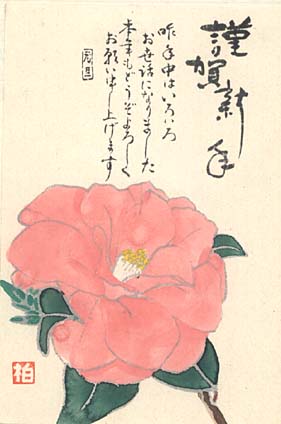 謹賀新年
昨年中はいろいろ
お世話になりました
本年もどうぞよろしく
お願い申し上げます
元旦
柏